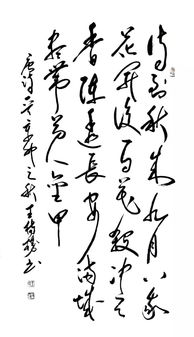 待到秋来九月八我
花开后百花杀冲天
香阵透长安满城
尽带黄金甲
唐诗